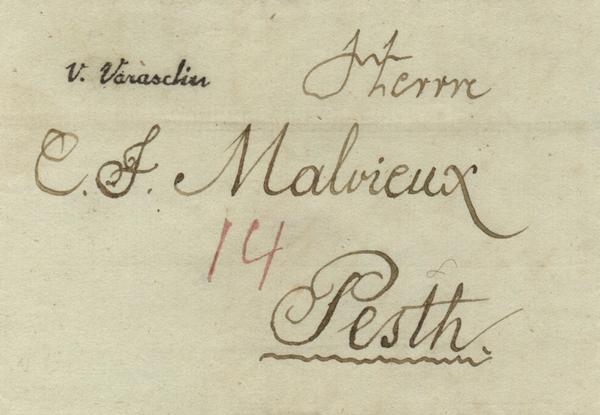 V. Varasdin
Herrn
C. F. Malvieux
14
Pesth.